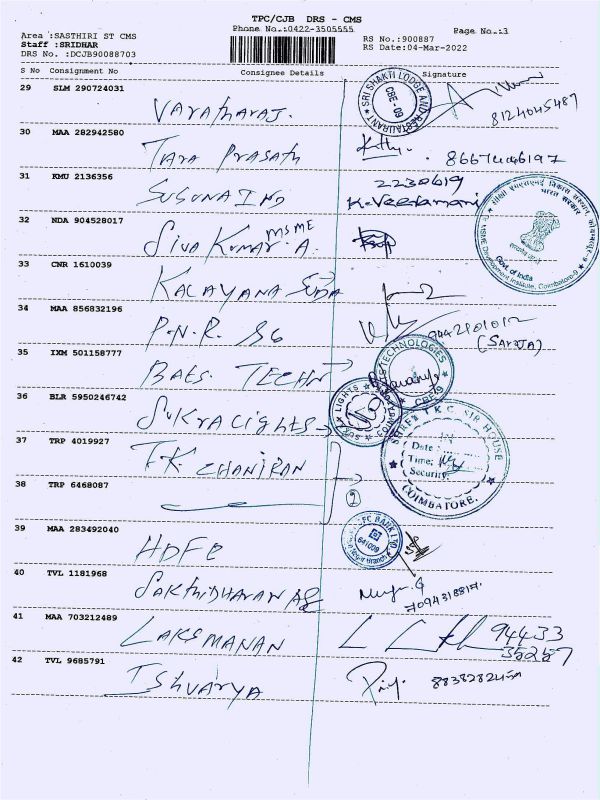 TPC/CJB DRS - CMS
Phone No.:0422-3505555
Page No.:3
Area :SASTHIRI ST CMS
Staff :SRIDHAR
DRS No. :DCJB90088703
RS No.:900887
RS Date:04-Mar-2022
S No Consignment No Consignee Details Signature
29 SLM 290724031
Varatharaj.
SRI SHAKTI LODGE AND RESTAURANT
CBE - 09
8124045487
30 MAA 282942580
Tara Prasath
8667446197
31 KMU 2136356
2230619
K.Veeramani
32 NDA 904528017
MSME
Siva Kumar. A.
भारत सरकार
Govt. of India
MSME Development Institute, Coimbatore
33 CNR 1610039
KALAYANA
34 MAA 856832196
P.N.R. SG
9442101012
35 IXM 501158777
BATS TECHN
TECHNOLOGIES
36 BLR 5950246742
SUKRA LIGHTS
LIGHTS
37 TRP 4019927
T.K CHANIRAN
T.K.C. SIR HOUSE
Date :
Time:
Security:
COIMBATORE.
38 TRP 6468087
2
39 MAA 283492040
HDFC
HDFC BANK LTD
641009
40 TVL 1181968
SAKTHIDHARAN
41 MAA 703212489
LAKSMANAN
94433
35257
42 TVL 9685791
ISHVARYA